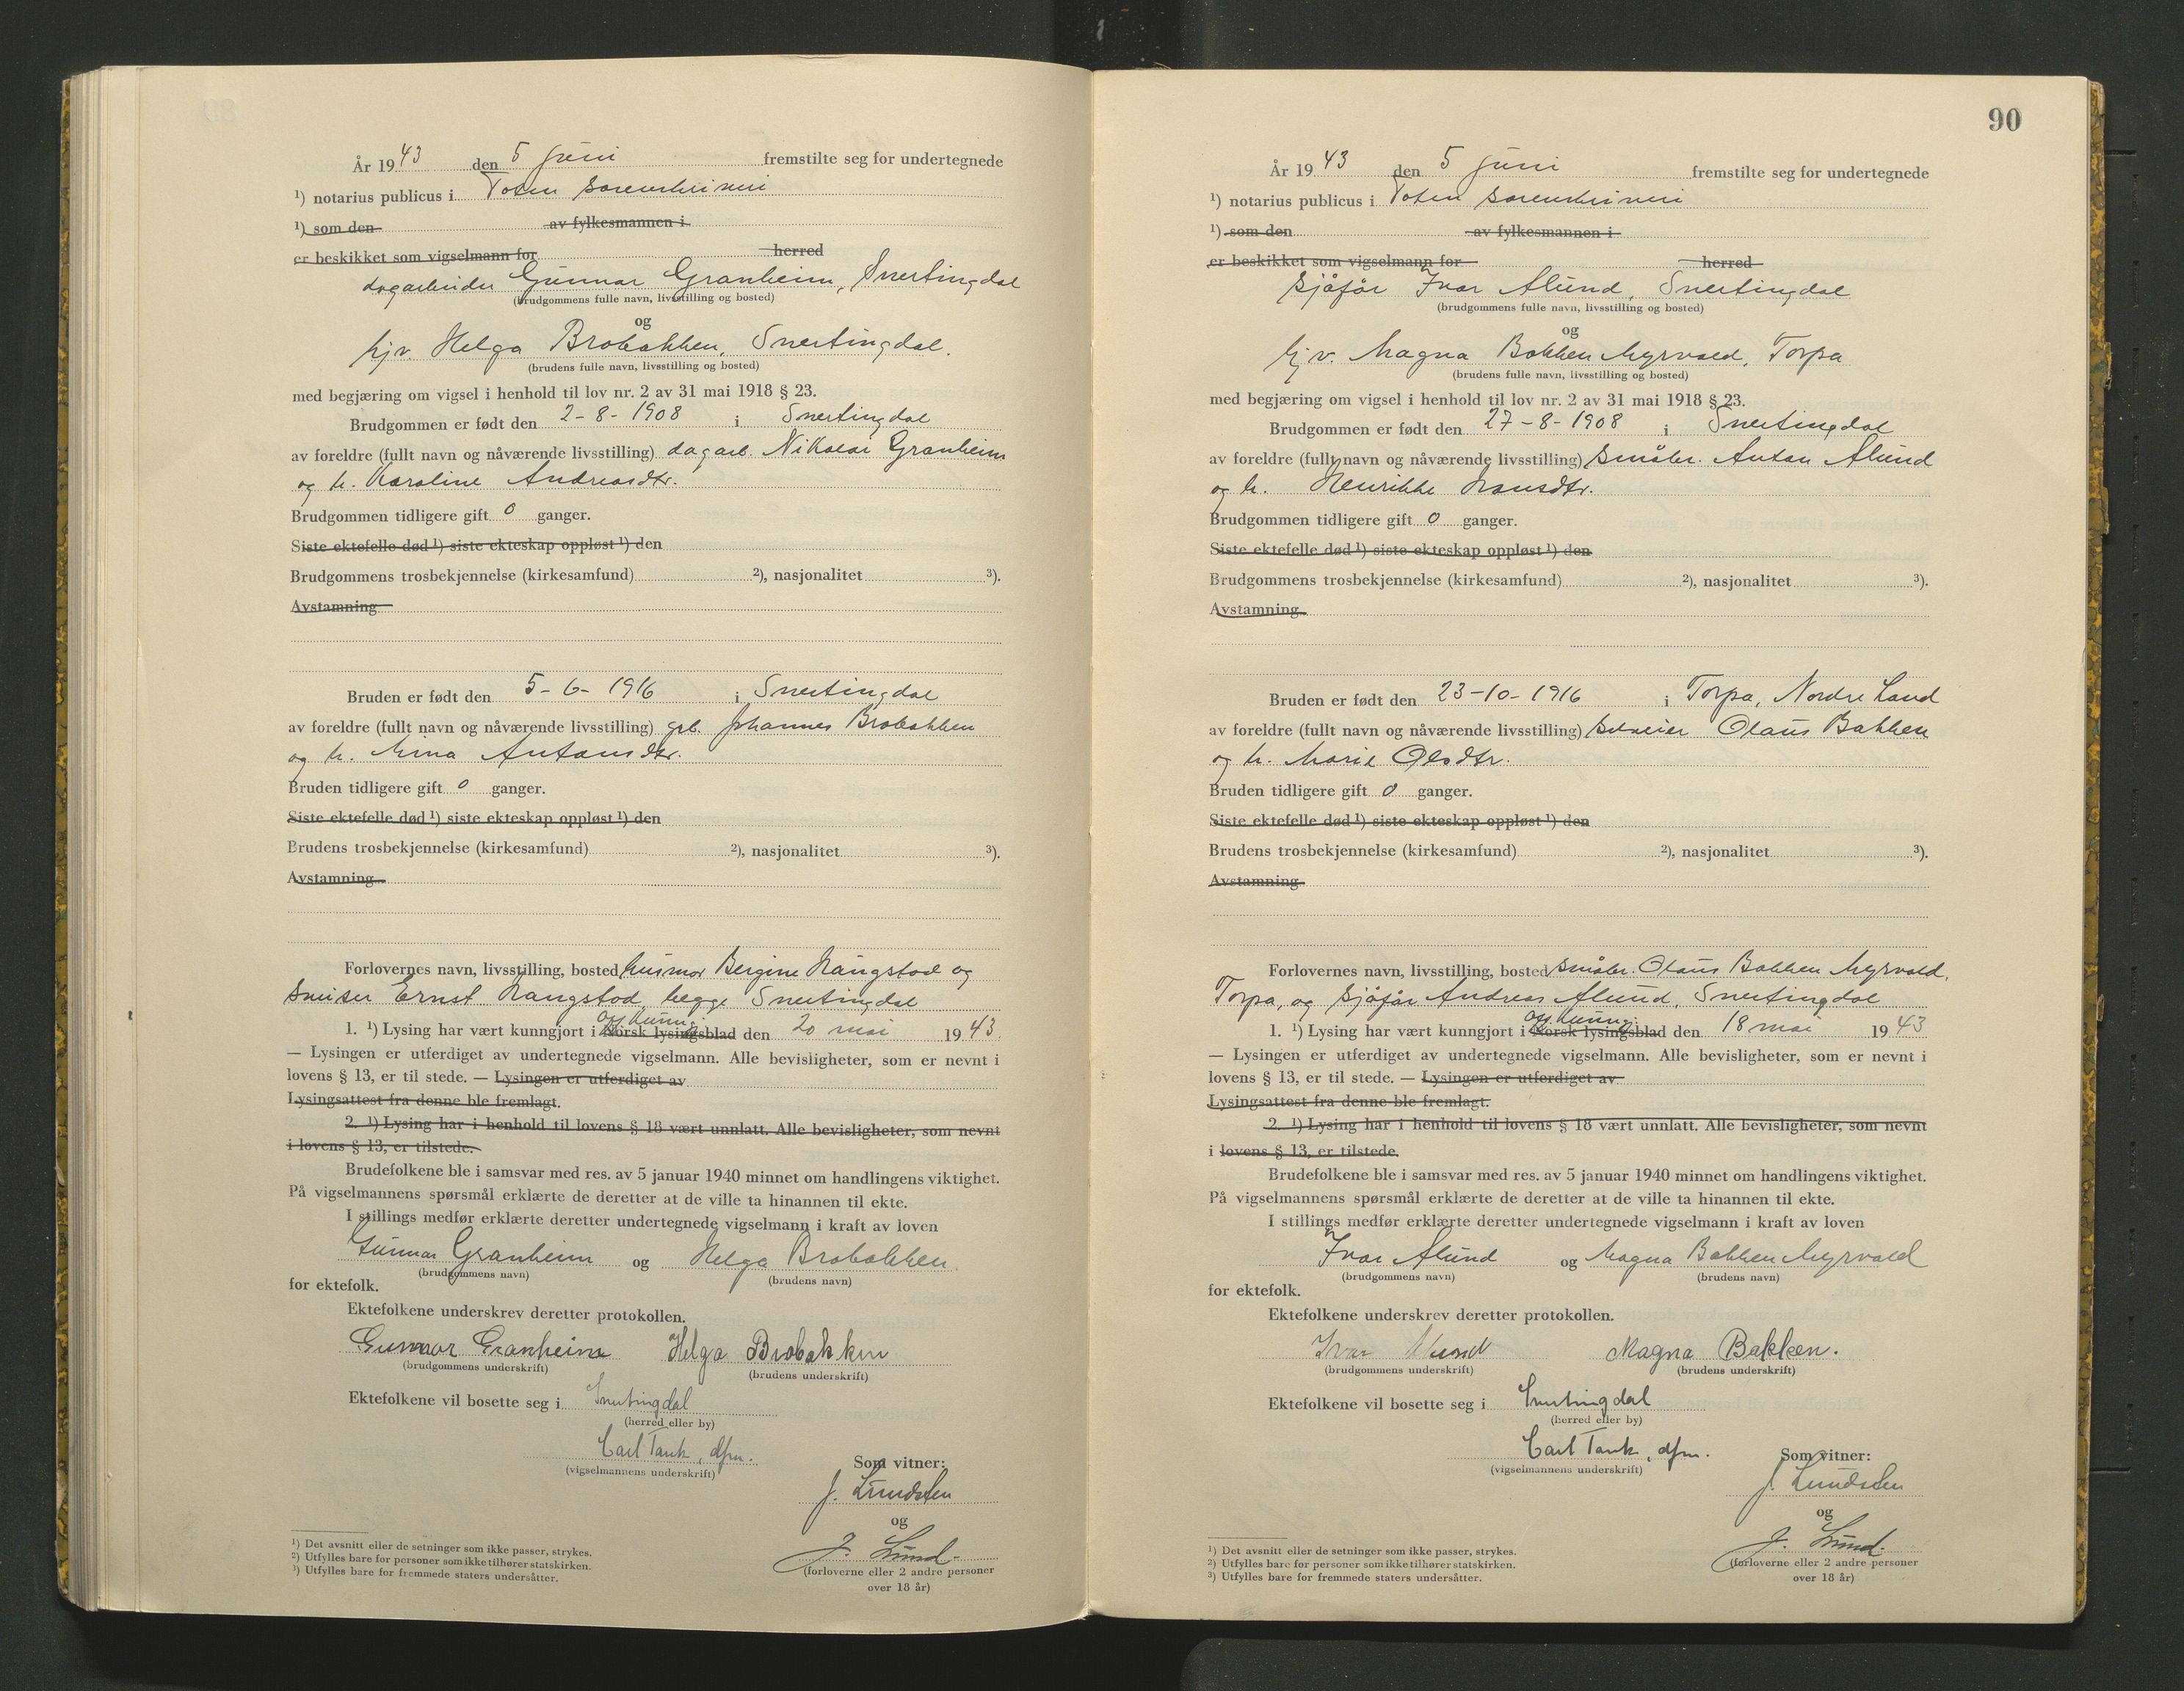 År 1943 den 5 juni fremstilte seg for undertegnede
¹) notarius publicus i Toten sorenskriveri
¹) som den av fylkesmannen i
er beskikket som vigselmann for herred
dagarbeider Gunnar Granheim, Snertingdal
(brudgommens fulle navn, livsstilling og bosted)
og
hjv. Helga Brobakken, Snertingdal.
(brudens fulle navn, livsstilling og bosted)
med begjæring om vigsel i henhold til lov nr. 2 av 31 mai 1918 § 23.
Brudgommen er født den 2-8-1908 i Snertingdal
av foreldre (fullt navn og nåværende livsstilling) dagarb. Nikolai Granheim
og h. Karoline Andreasdtr.
Brudgommen tidligere gift 0 ganger.
Siste ektefelle død ¹) siste ekteskap oppløst ¹) den
Brudgommens trosbekjennelse (kirkesamfund) ²), nasjonalitet ³).
Avstamning
Bruden er født den 5-6-1916 i Snertingdal
av foreldre (fullt navn og nåværende livsstilling) grb. Johannes Brobakken
og h. Mina Antonsdtr.
Bruden tidligere gift 0 ganger.
Siste ektefelle død ¹) siste ekteskap oppløst ¹) den
Brudens trosbekjennelse (kirkesamfund) ²), nasjonalitet ³).
Avstamning
Forlovernes navn, livsstilling, bosted husmor Bergine Haugstad og
Ernst Haugstad, begge Snertingdal
off. kunng.
1. ¹) Lysing har vært kunngjort i Norsk lysingsblad den 20 mai 1943.
— Lysingen er utferdiget av undertegnede vigselmann. Alle bevisligheter, som er nevnt i
lovens § 13, er til stede. — Lysingen er utferdiget av
Lysingsattest fra denne ble fremlagt.
2. ¹) Lysing har i henhold til lovens § 18 vært unnlatt. Alle bevisligheter, som nevnt
i lovens § 13, er tilstede.
Brudefolkene ble i samsvar med res. av 5 januar 1940 minnet om handlingens viktighet.
På vigselmannens spørsmål erklærte de deretter at de ville ta hinannen til ekte.
I stillings medfør erklærte deretter undertegnede vigselmann i kraft av loven
Gunnar Granheim og Helga Brobakken.
(brudgommens navn) (brudens navn)
for ektefolk.
Ektefolkene underskrev deretter protokollen.
Gunnar Granheim Helga Brobakken
(brudgommens underskrift) (brudens underskrift)
Ektefolkene vil bosette seg i Snertingdal
(herred eller by)
Carl Tank, dfm.
(vigselmannens underskrift)
Som vitner:
J. Lundsten
og
J. Lund.
(forloverne eller 2 andre personer
over 18 år)
¹) Det avsnitt eller de setninger som ikke passer, strykes.
²) Utfylles bare for personer som ikke tilhører statskirken.
³) Utfylles bare for fremmede staters undersåtter.
90
År 1943 den 5 juni fremstilte seg for undertegnede
¹) notarius publicus i Toten sorenskriveri
¹) som den av fylkesmannen i
er beskikket som vigselmann for herred
sjåfør Ivar Alund, Snertingdal
(brudgommens fulle navn, livsstilling og bosted)
og
hjv. Magna Bakken Myrvold, Torpa
(brudens fulle navn, livsstilling og bosted)
med begjæring om vigsel i henhold til lov nr. 2 av 31 mai 1918 § 23.
Brudgommen er født den 27-8-1908 i Snertingdal
av foreldre (fullt navn og nåværende livsstilling) småbr. Anton Alund
og h. Henrikke Hansdtr.
Brudgommen tidligere gift 0 ganger.
Siste ektefelle død ¹) siste ekteskap oppløst ¹) den
Brudgommens trosbekjennelse (kirkesamfund) ²), nasjonalitet ³).
Avstamning
Bruden er født den 23-10-1916 i Torpa, Nordre Land
av foreldre (fullt navn og nåværende livsstilling) selveier Olaus Bakken
og h. Marie Olsdtr.
Bruden tidligere gift 0 ganger.
Siste ektefelle død ¹) siste ekteskap oppløst ¹) den
Brudens trosbekjennelse (kirkesamfund) ²), nasjonalitet ³).
Avstamning
Forlovernes navn, livsstilling, bosted småbr. Olaus Bakken Myrvold,
Torpa, og sjåfør Andreas Alund, Snertingdal
off. kunng.
1. ¹) Lysing har vært kunngjort i Norsk lysingsblad den 18 mai 1943
— Lysingen er utferdiget av undertegnede vigselmann. Alle bevisligheter, som er nevnt i
lovens § 13, er til stede. — Lysingen er utferdiget av
Lysingsattest fra denne ble fremlagt.
2. ¹) Lysing har i henhold til lovens § 18 vært unnlatt. Alle bevisligheter, som nevnt
i lovens § 13, er tilstede.
Brudefolkene ble i samsvar med res. av 5 januar 1940 minnet om handlingens viktighet.
På vigselmannens spørsmål erklærte de deretter at de ville ta hinannen til ekte.
I stillings medfør erklærte deretter undertegnede vigselmann i kraft av loven
Ivar Alund og Magna Bakken Myrvold
(brudgommens navn) (brudens navn)
for ektefolk.
Ektefolkene underskrev deretter protokollen.
Ivar Alund Magna Bakken.
(brudgommens underskrift) (brudens underskrift)
Ektefolkene vil bosette seg i Snertingdal
(herred eller by)
Carl Tank, dfm.
(vigselmannens underskrift)
Som vitner:
J. Lundsten
og
J. Lund.
(forloverne eller 2 andre personer
over 18 år)
¹) Det avsnitt eller de setninger som ikke passer, strykes.
²) Utfylles bare for personer som ikke tilhører statskirken.
³) Utfylles bare for fremmede staters undersåtter.